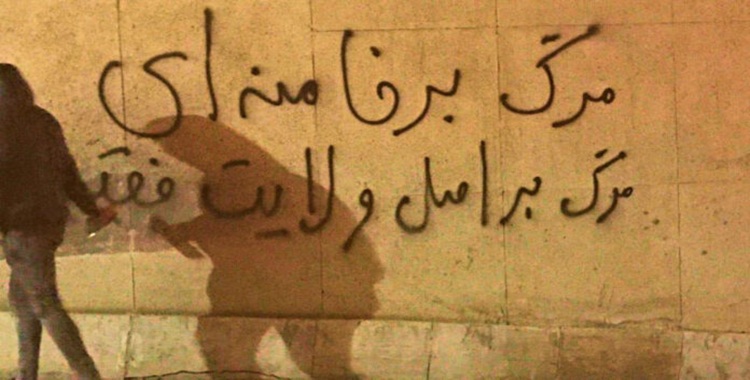 مرگ بر خامنه‌ای
مرگ بر اصل ولایت فقی